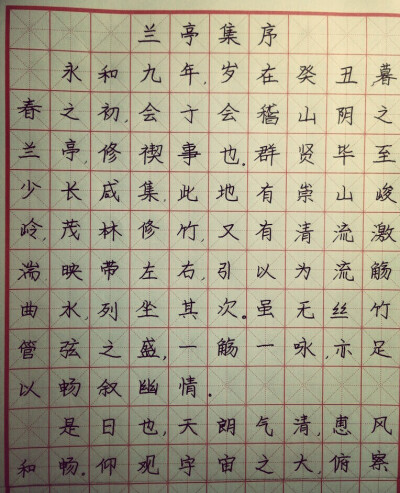 兰亭集序
永和九年,岁在癸丑,暮
春之初,会于会稽山阴之
兰亭,修禊事也。群贤毕至
少长咸集,此地有崇山峻
岭,茂林修竹,又有清流激
湍,映带左右,引以为流觞
曲水,列坐其次。虽无丝竹
管弦之盛,一觞一咏,亦足
以畅叙幽情。
是日也,天朗气清,惠风
和畅。仰观宇宙之大,俯察